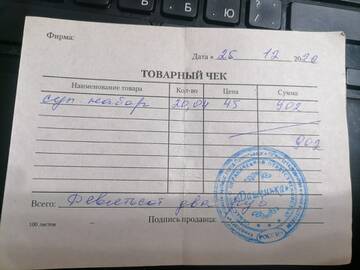 Фирма:
Дата « 25 12 2020
ТОВАРНЫЙ ЧЕК
Наименование товара Кол-во Цена Сумма
суп. набор 20,04 45 902
902
Всего: Девятьсот два
100 листов
Подпись продавца: